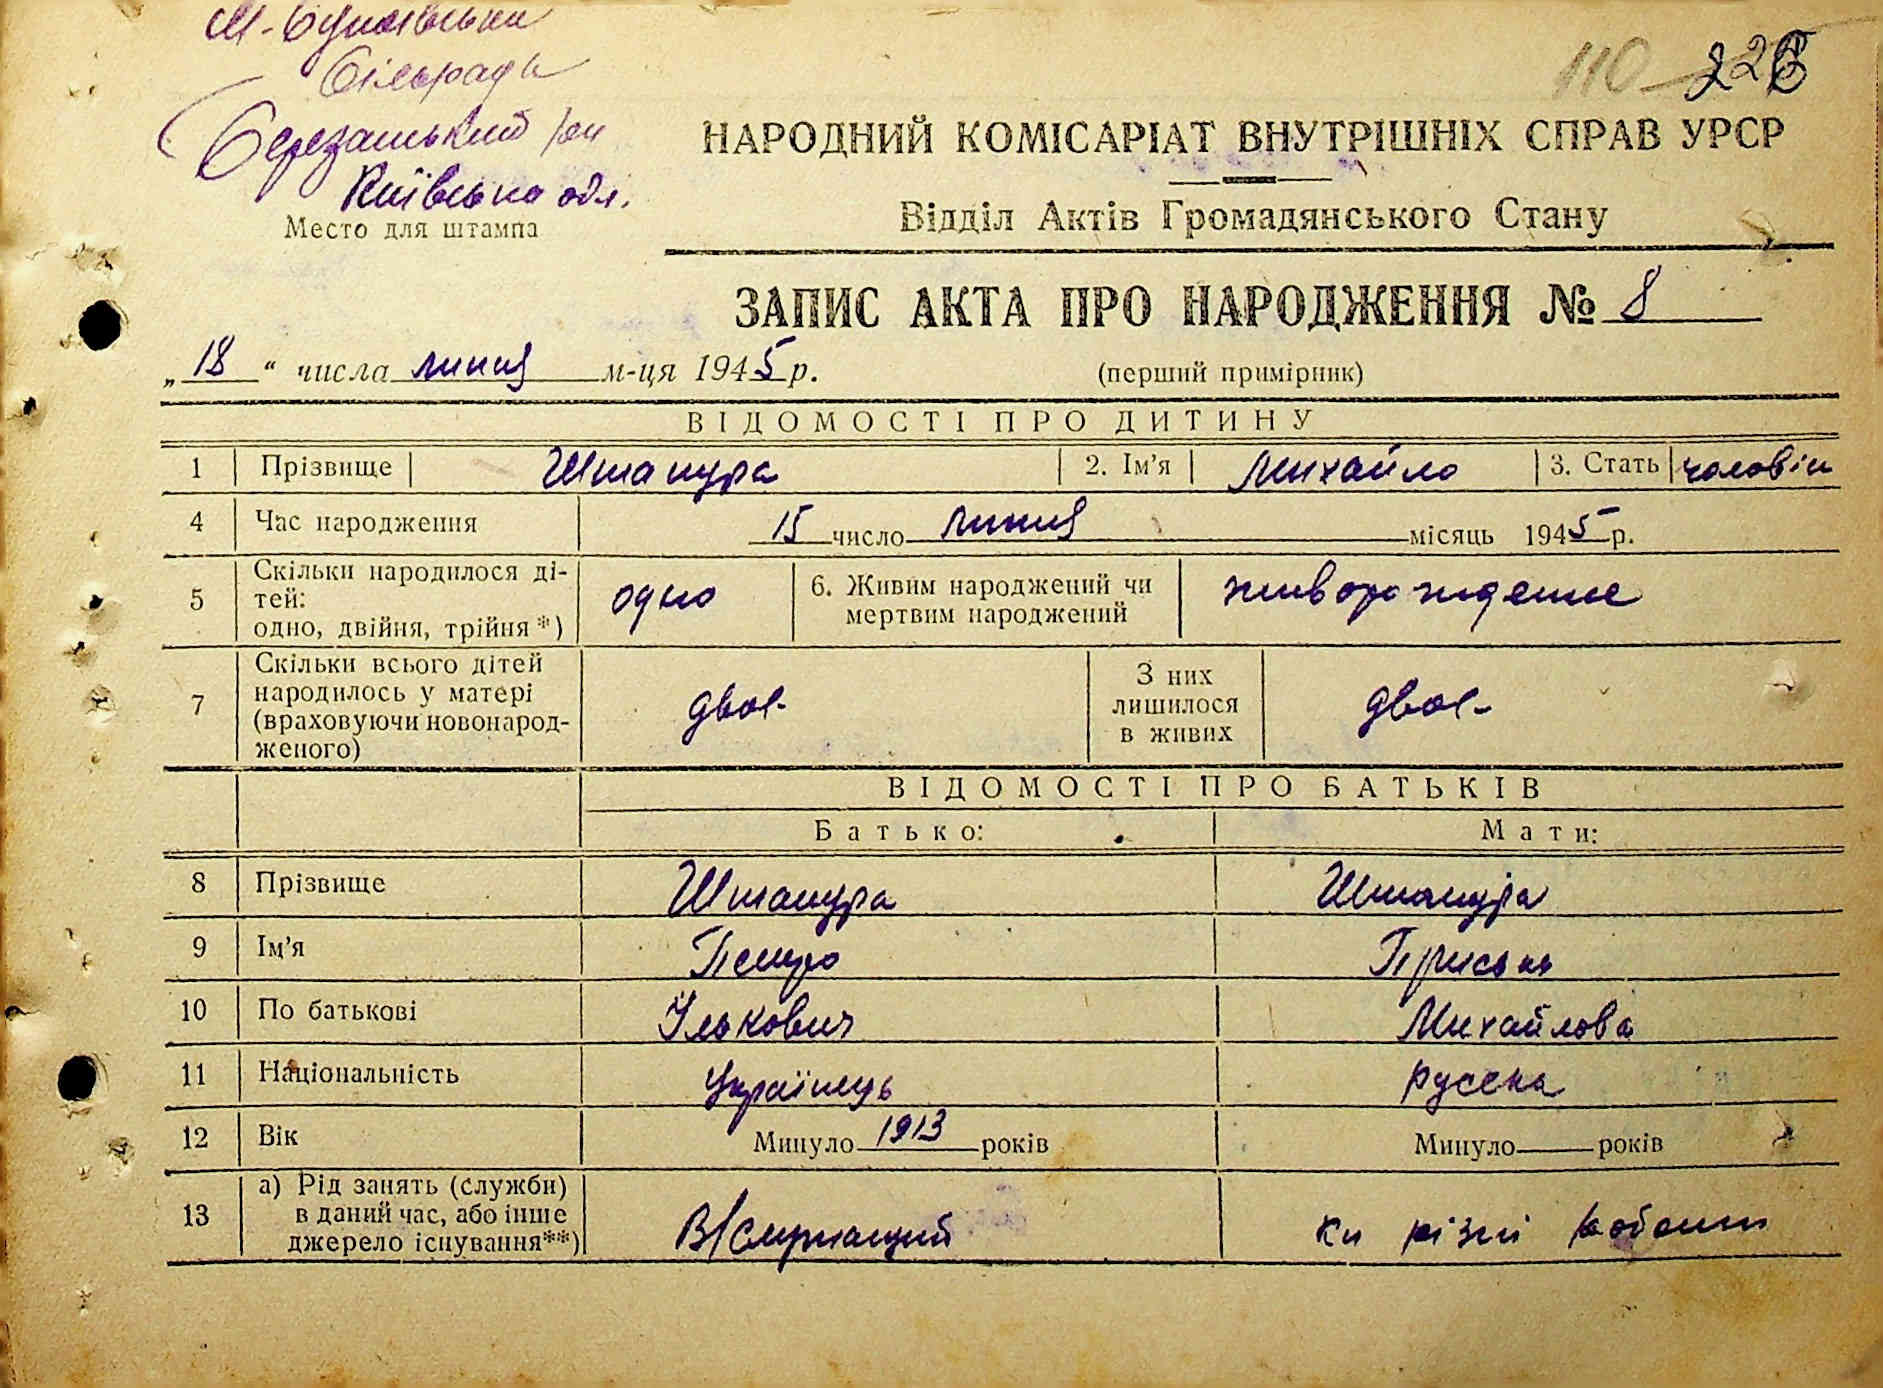 Сільрада
Березанський р-н
Київська обл.
Место для штампа
110 228
НАРОДНИЙ КОМІСАРІАТ ВНУТРІШНІХ СПРАВ УРСР
Відділ Актів Громадянського Стану
ЗАПИС АКТА ПРО НАРОДЖЕННЯ № 8
„18“ числа липня м-ця 1945 р.
(перший примірник)
ВІДОМОСТІ ПРО ДИТИНУ
1 Прізвище Штанура 2. Ім’я Михайло 3. Стать чоловіч
4 Час народження 15 число липня місяць 1945 р.
5 Скільки народилося ді-
тей:
одно, двійня, трійня*)
одно
6. Живим народжений чи
мертвим народжений
живорождение
7 Скільки всього дітей
народилось у матері
(враховуючи новонарод-
женого)
двоє
З них
лишилося
в живих
двоє
ВІДОМОСТІ ПРО БАТЬКІВ
Батько: Мати:
8 Прізвище Штанура Штанура
9 Ім’я Петро Приська
10 По батькові Ількович Михайлова
11 Національність Українець русска
12 Вік Минуло 1913 років Минуло років
13 а) Рід занять (служби)
в даний час, або інше
джерело існування**)
В/служащий
на різні роботи